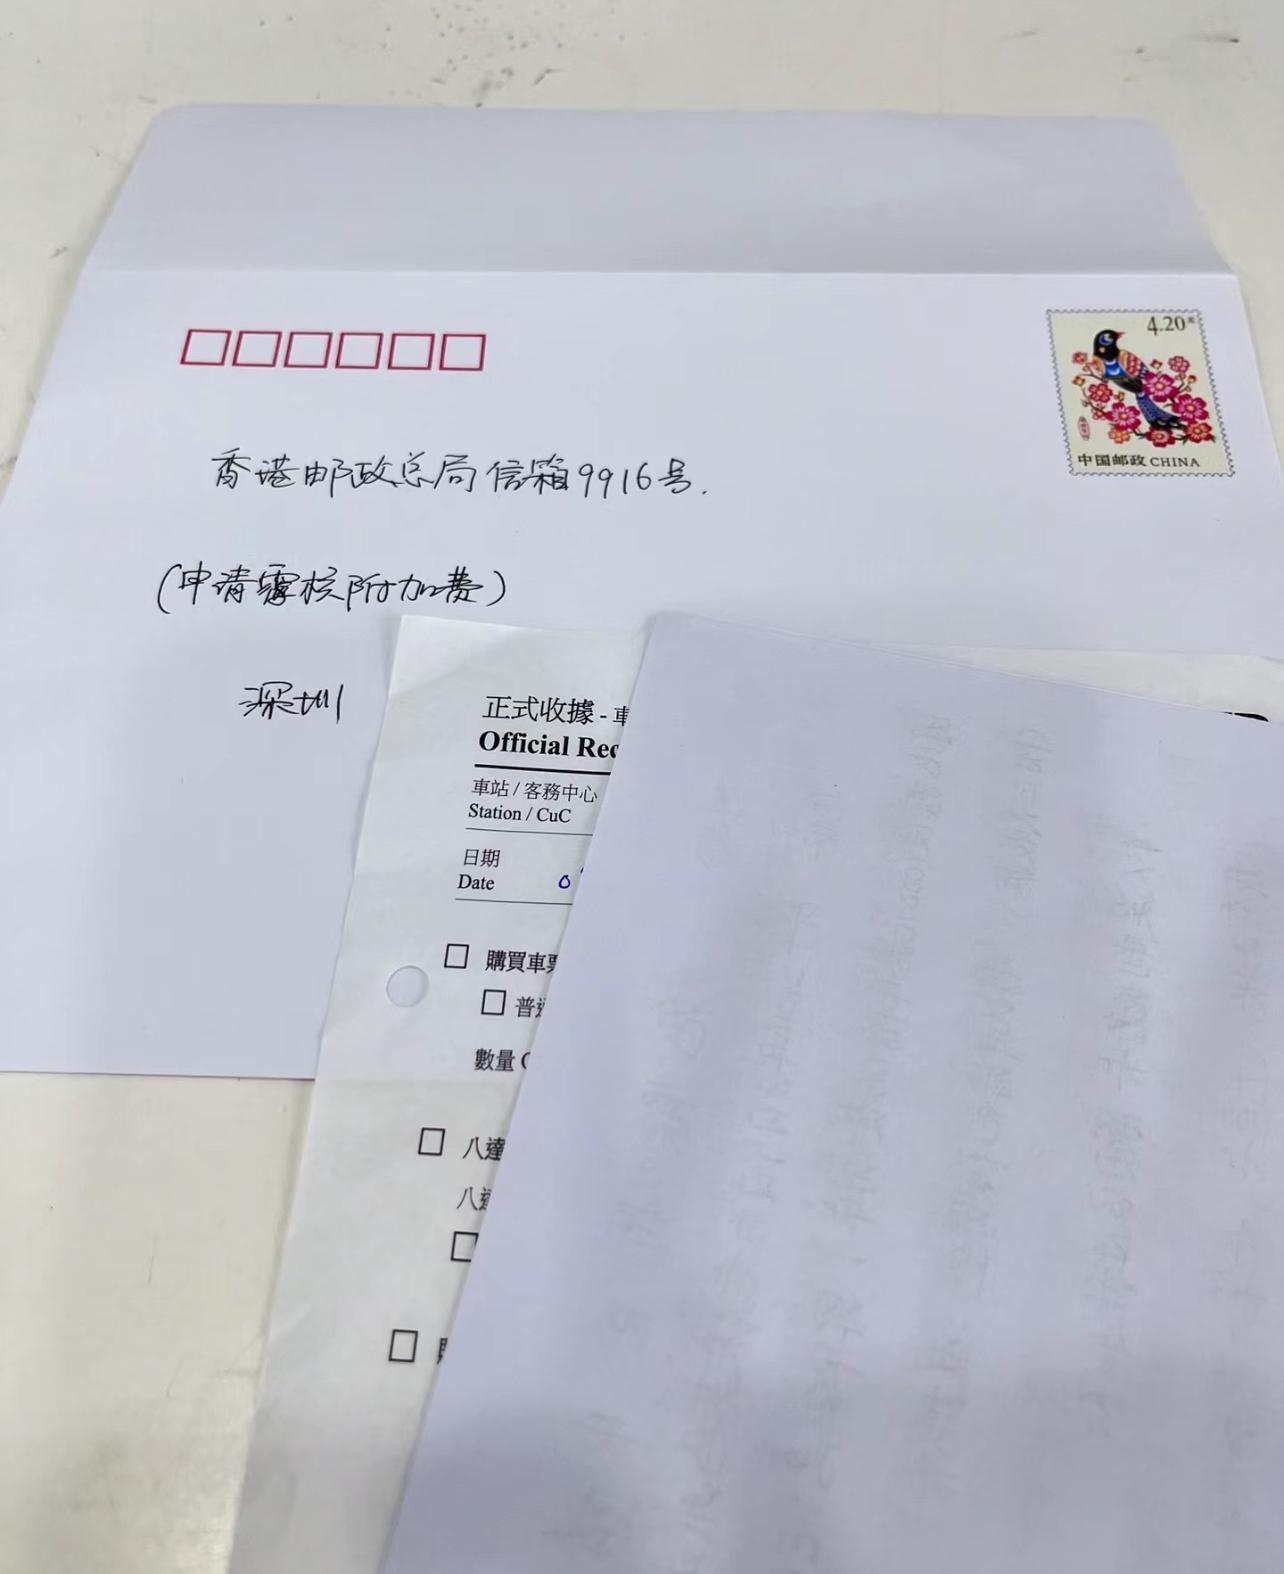 4.20元
中国邮政 CHINA
香港邮政总局信箱9916号.
(申请覆核附加费)
深圳
正式收據 - 車
Official Rec
車站 / 客務中心
Station / CuC
日期
Date 0
購買車票
普通
數量
八達
八達